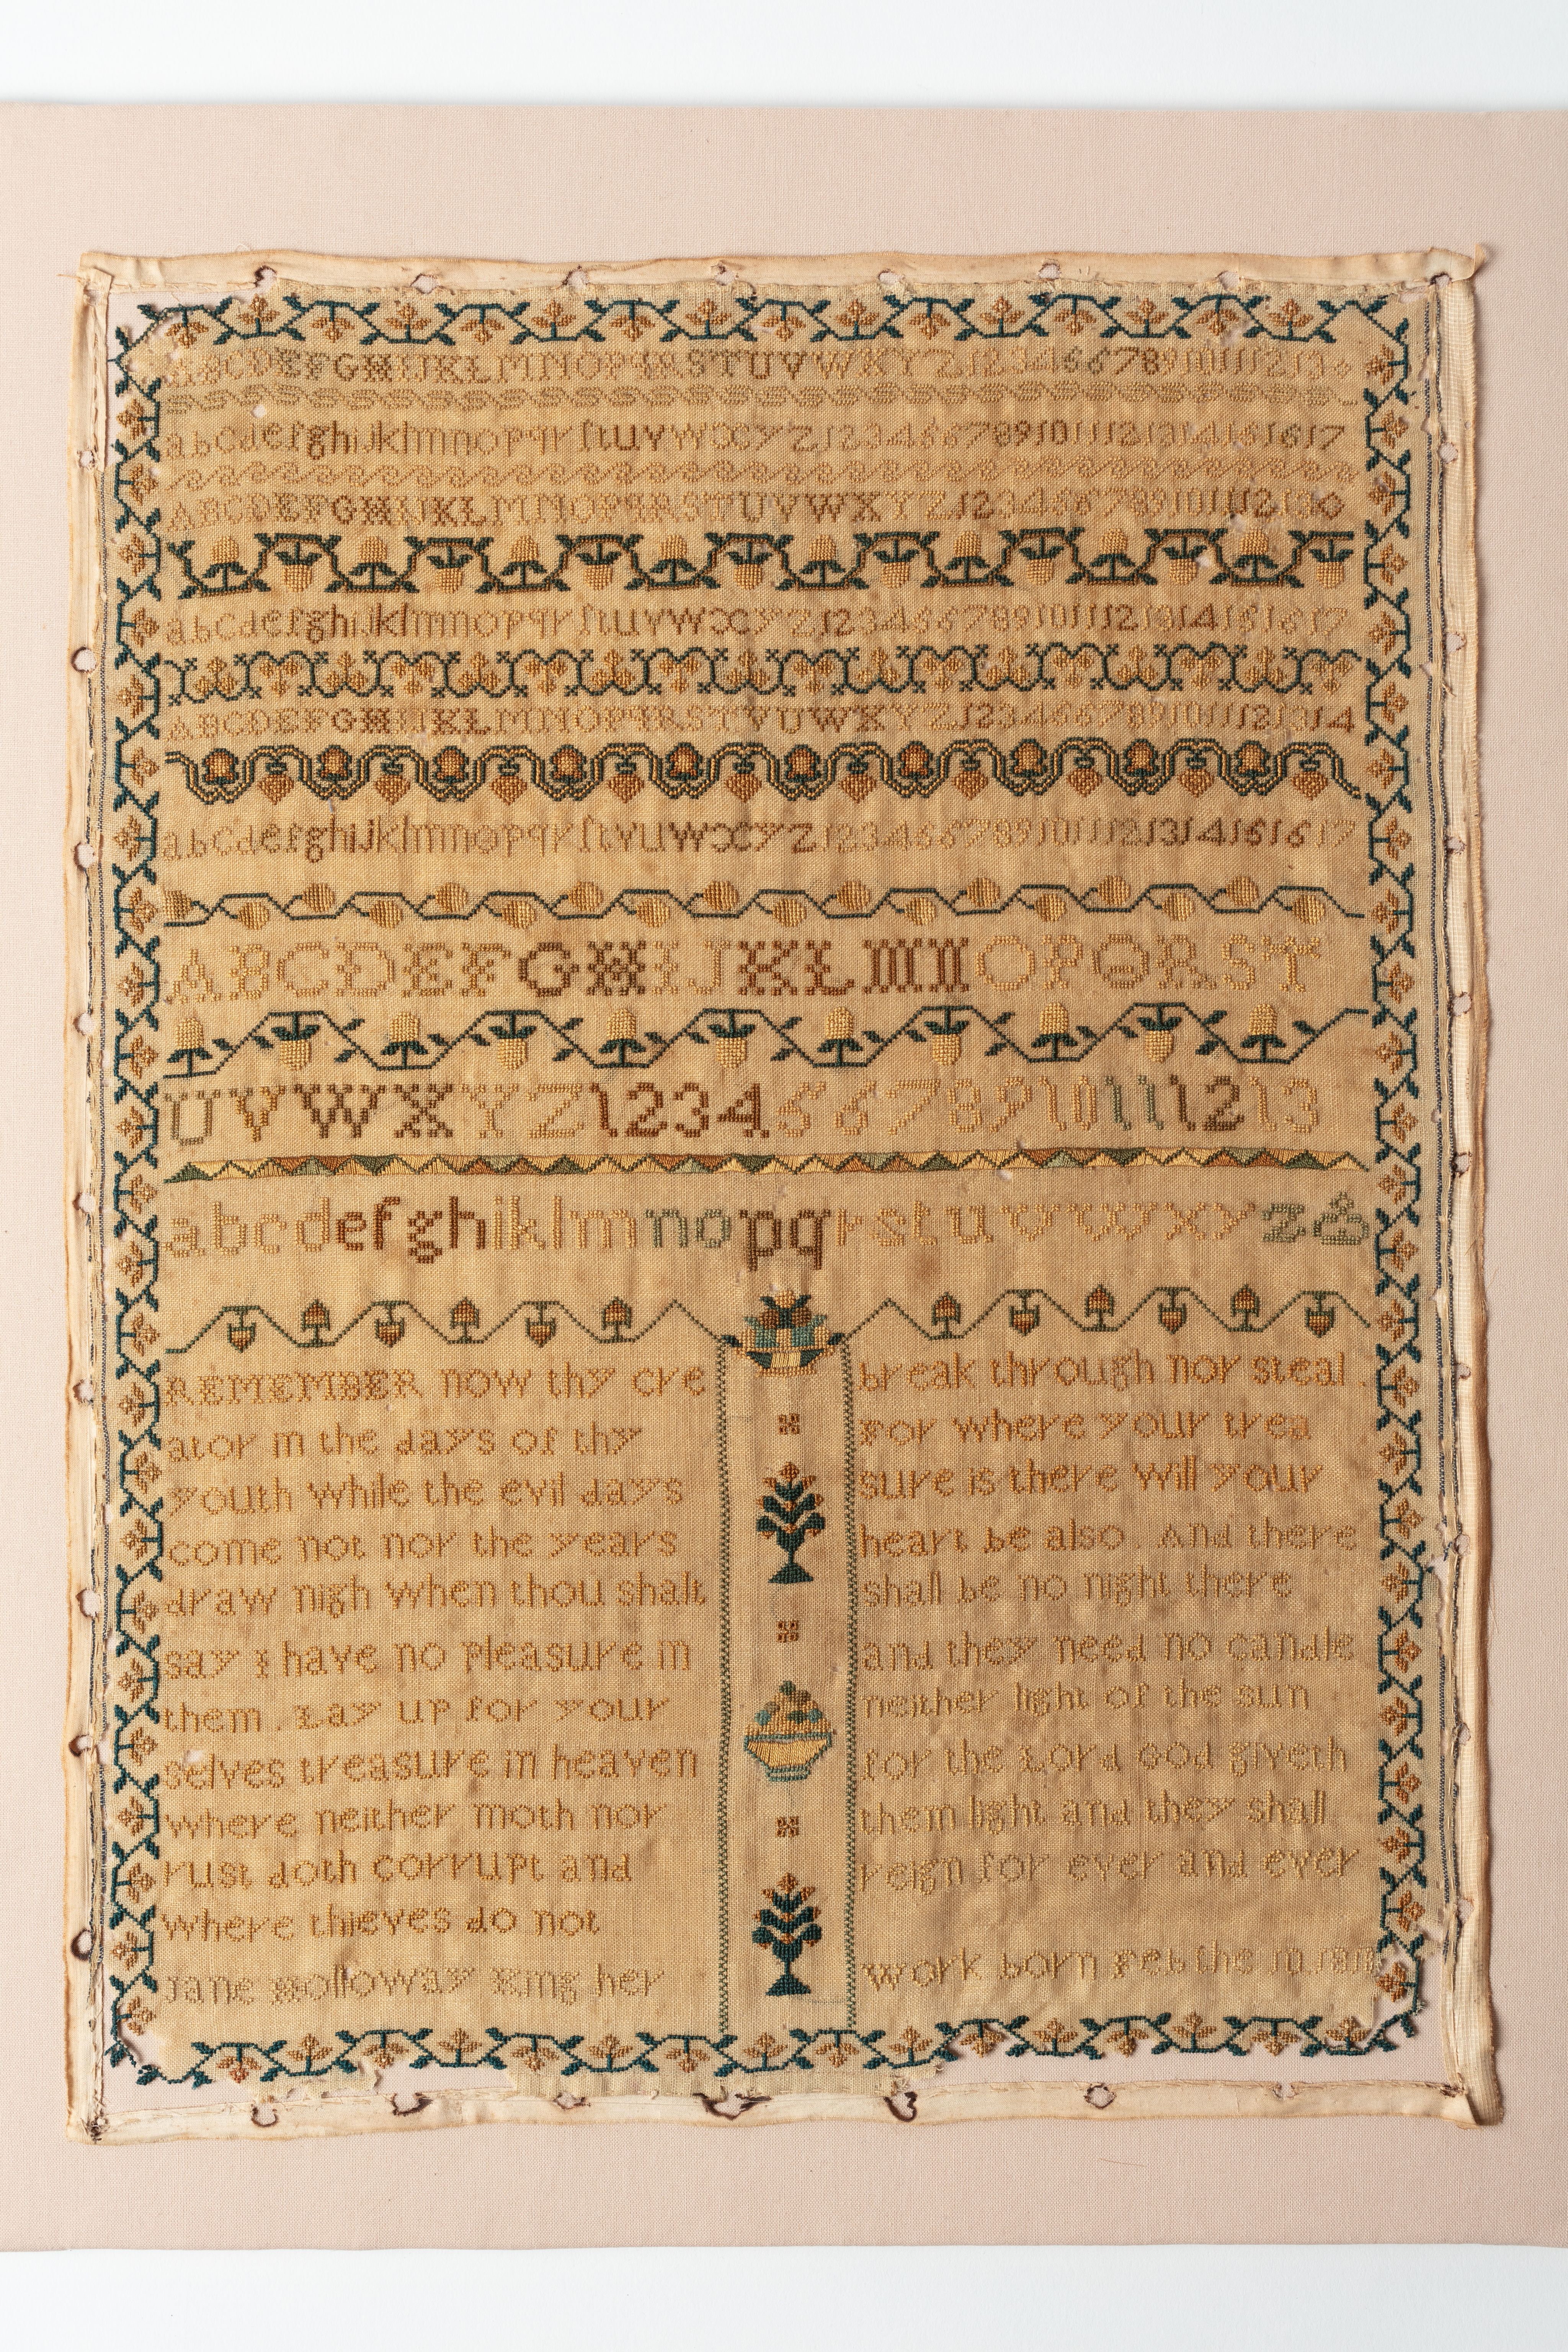 ABCDEFGHIJKLMNOPQRSTUVWXYZ12346678910111213
abcdefghijklmnopqrſtuvwxyz1234667891011121314151617
ABCDEFGHIJKLMNOPQRSTUVWXYZ123466789101112130
abcdefghijklmnopqrſtuvwxyz1234667891011121314151617
ABCDEFGHIJKLMNOPQRSTVUWXYZ1234667891011121314
abcdefghijklmnopqrſtvuwxyz1234667891011121314151617
ABCDEFGHIJKLMNOPQRST
UVWXYZ12345678910111213
abcdefghiklmnopqrstuvwxyz
REMEMBER now thy cre
ator in the days of thy
youth while the evil days
come not nor the years
draw nigh when thou shalt
say I have no Pleasure in
them. Lay up for your
selves treasure in heaven
where neither moth nor
rust doth corrupt and
where thieves do not
break through nor steal.
For where your trea
sure is there will your
heart be also. And there
shall be no night there
and they need no candle
neither light of the sun
for the Lord God giveth
them light and they shall
reign for ever and ever
Jane Holloway King her
work born Feb the